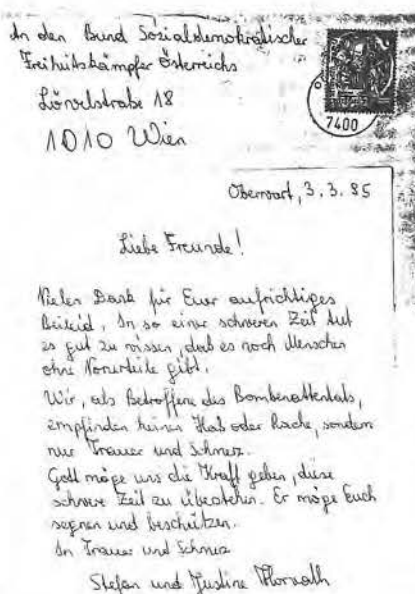 An den Bund Sozialdemokratischer
Freiheitskämpfer Österreichs
Löwelstraße 18
1010 Wien
7400
Oberwart, 3.3.95
Liebe Freunde!
Vielen Dank für Euer aufrichtiges
Beileid. In so einer schweren Zeit tut
es gut zu wissen, daß es noch Menschen
ohne Vorurteile gibt.
Wir, als Betroffene des Bombenattentats,
empfinden keinen Haß oder Rache, sondern
nur Trauer und Schmerz.
Gott möge uns die Kraft geben, diese
schwere Zeit zu überstehen. Er möge Euch
segnen und beschützen.
In Trauer und Schmerz
Stefan und Justine Horvath